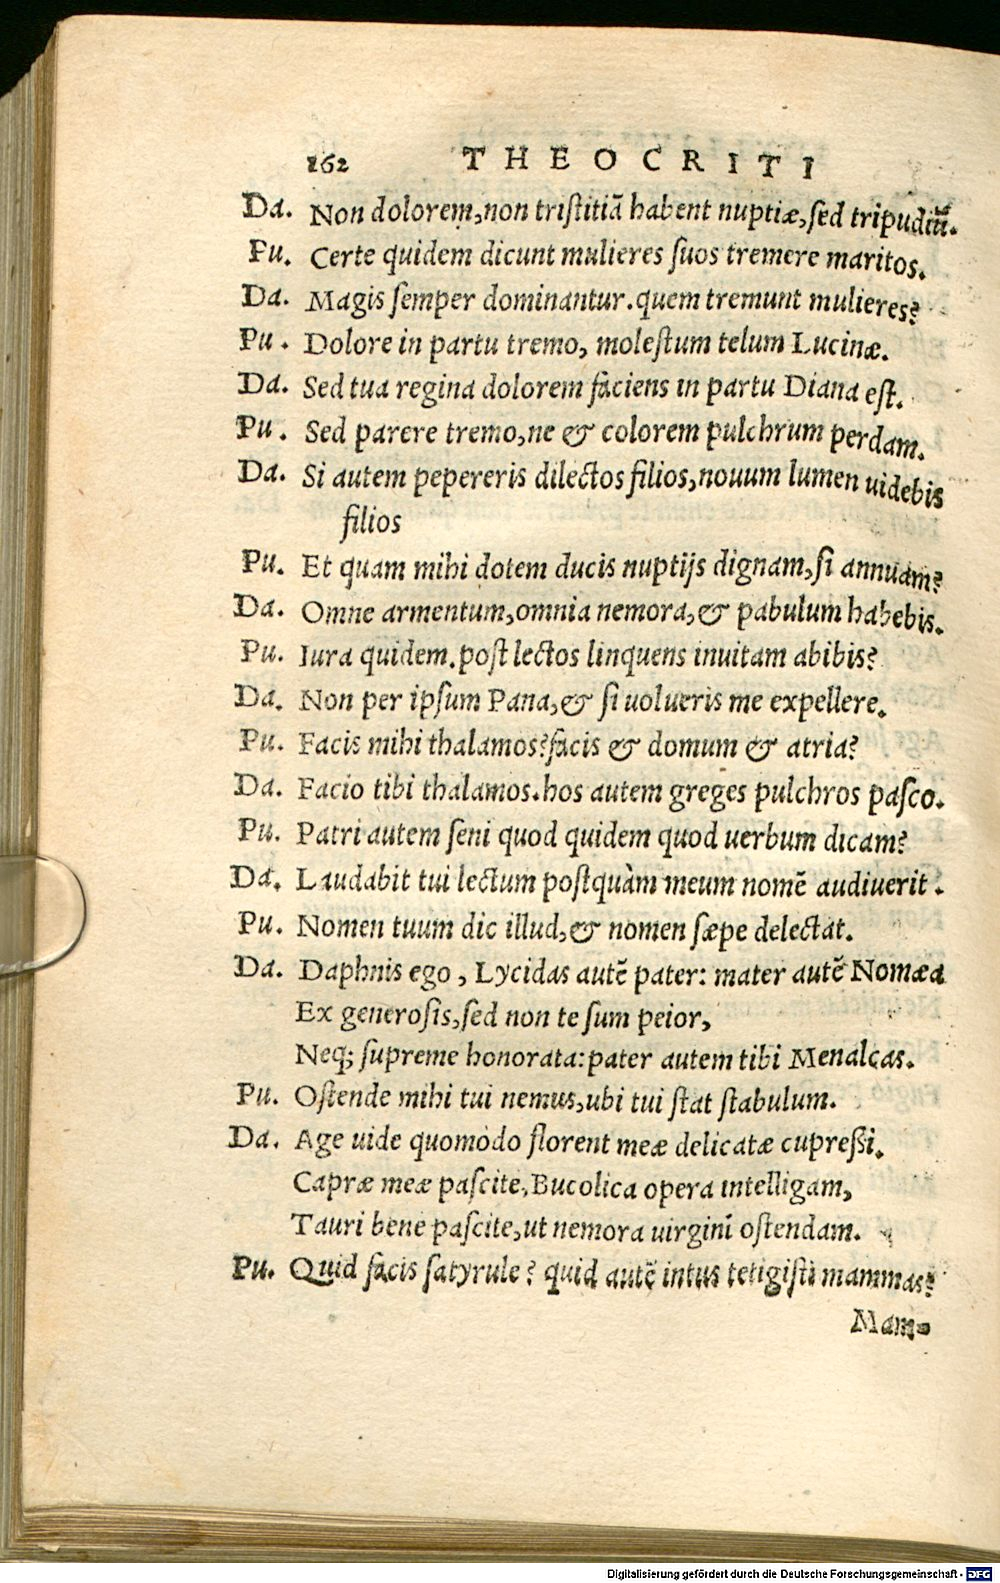 162 THEOCRITI
Da. Non dolorem, non tristitiā habent nuptiæ, sed tripudiū.
Pu. Certe quidem dicunt mulieres suos tremere maritos.
Da. Magis semper dominantur. quem tremunt mulieres?
Pu. Dolore in partu tremo, molestum telum Lucinæ.
Da. Sed tua regina dolorem faciens in partu Diana est.
Pu. Sed parere tremo, ne & colorem pulchrum perdam.
Da. Si autem pepereris dilectos filios, nouum lumen uidebis
filios
Pu. Et quam mihi dotem ducis nuptijs dignam, si annuam?
Da. Omne armentum, omnia nemora, & pabulum habebis.
Pu. Iura quidem. post lectos linquens inuitam abibis?
Da. Non per ipsum Pana, & si uolueris me expellere.
Pu. Facis mihi thalamos? facis & domum & atria?
Da. Facio tibi thalamos. hos autem greges pulchros pasco.
Pu. Patri autem seni quod quidem quod uerbum dicam?
Da. Laudabit tui lectum postquàm meum nomē audiuerit.
Pu. Nomen tuum dic illud, & nomen sæpe delectat.
Da. Daphnis ego, Lycidas autē pater: mater autē Nomæa
Ex generosis, sed non te sum peior,
Neq; supreme honorata: pater autem tibi Menalcas.
Pu. Ostende mihi tui nemus, ubi tui stat stabulum.
Da. Age uide quomodo florent meæ delicatæ cupressi.
Capræ meæ pascite, Bucolica opera intelligam,
Tauri bene pascite, ut nemora uirgini ostendam.
Pu. Quid facis satyrule? quid autē intus tetigisti mammas?
Mam-
Digitalisierung gefördert durch die Deutsche Forschungsgemeinschaft - DFG